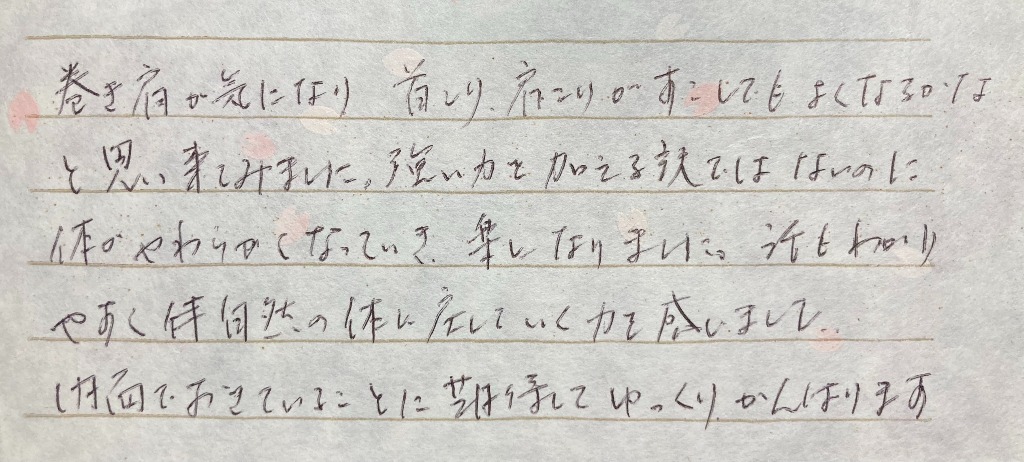 巻き肩が気になり 首こり、肩こりがすこしでもよくなるかな
と思い来てみました。強い力を加える訳ではないのに
体がやわらかくなっていき、楽になりました。話もわかり
やすく 自然の体に戻していく力を感じまして、
内面でおきていることに期待してゆっくりがんばります